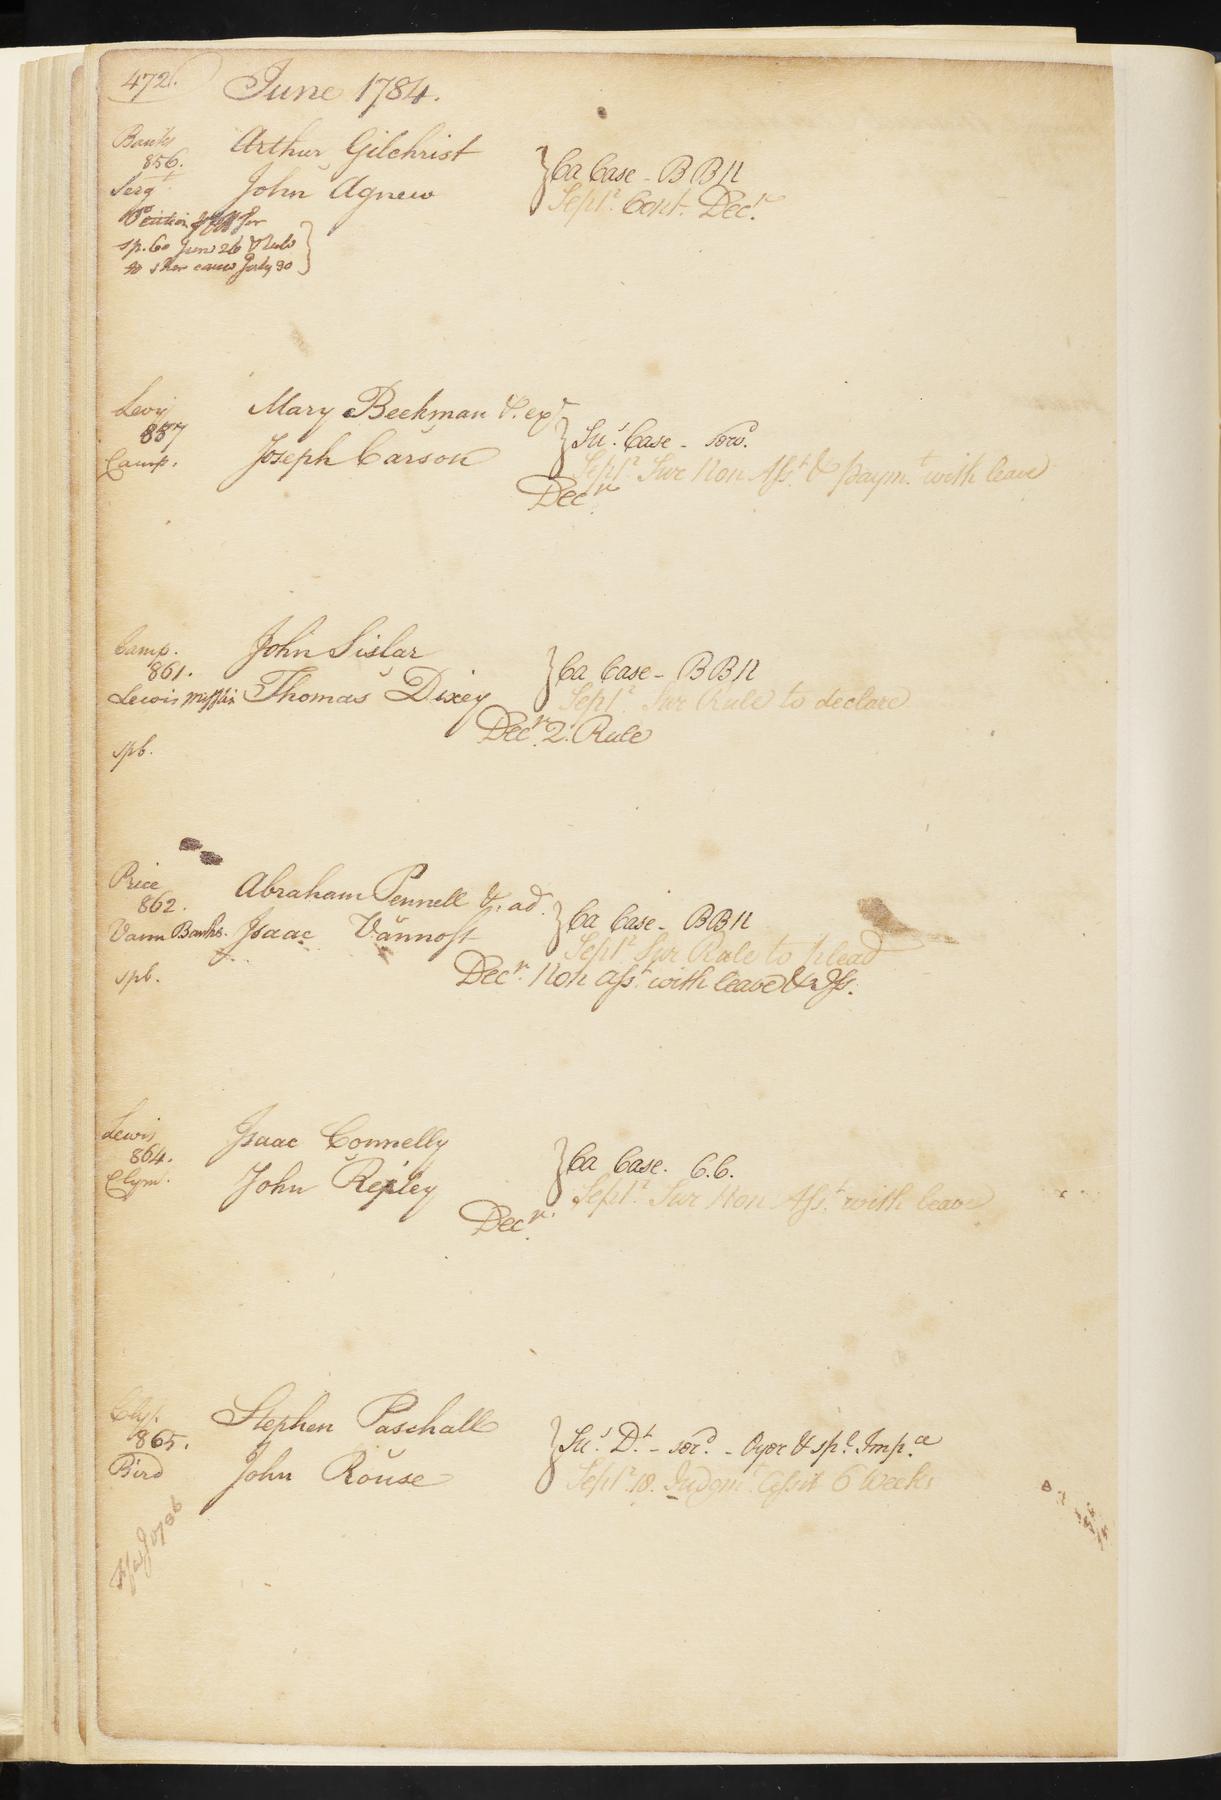 472. June 1784.
Banks Arthur Gilchrist
856. } Ca Case - BBH
Serg.t John Agnew Sept.r Cont. Dec.r
Petition for
sp. June 26 & Rule
to shew cause July 30 }
Levy Mary Beekman & exr
887 } Su.s Case - serv.d
Camp. Joseph Carson Sept.r Sur Non Ass.t & paym.t with leave
Dec.r
Camp. John Sislar
861. } Ca Case - BBH
Lewis Mifflin Thomas Dixey Sept.r Sur Rule to declare
Dec.r 2. Rule
spb.
Price Abraham Pennell & ad.
862. } Ca Case - BBH
Vann Banks. Isaac Vannost Sept.r Sur Rule to plead
spb. Dec.r Non ass.t with leave & Iss.
Lewis Isaac Connelly
864. } Ca Case. C.C.
Clym. John Repley Sept.r Sur Non Ass.t with leave
Dec.r
Stephen Paschall
865. } Su.s D.t - ser.d - Oyer & sp.l Imp.ce
Bird John Rouse Sept.r 18. Judgm.t Cesset 6 Weeks